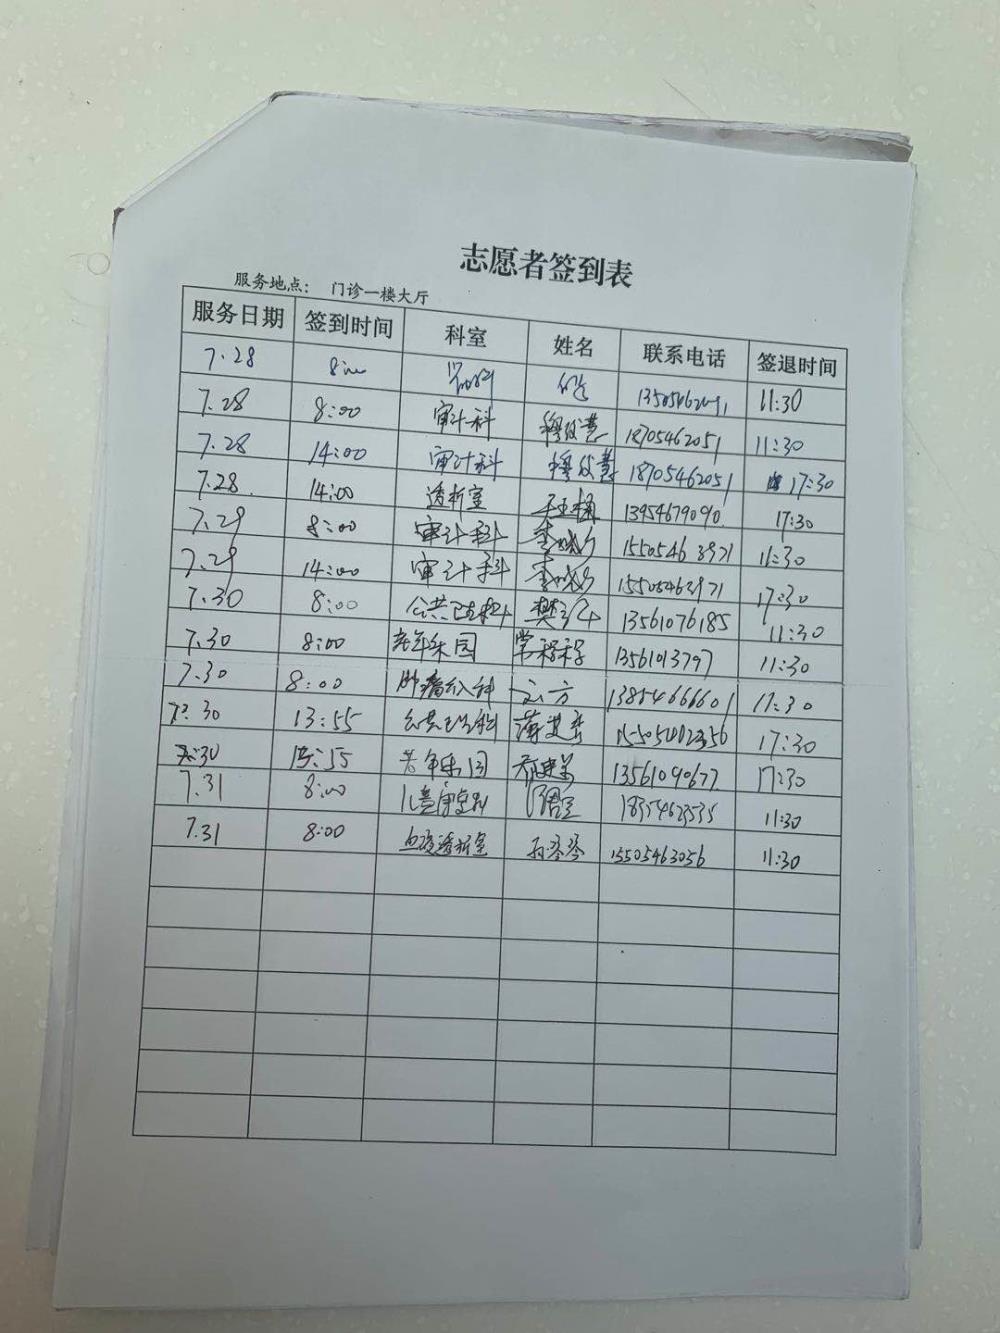 志愿者签到表
服务地点： 门诊一楼大厅
服务日期 签到时间 科室 姓名 联系电话 签退时间
7.28 11:30
7.28 8:00 审计科 18705462051 11:30
7.28 14:00 审计科 18705462051 17:30
7.28. 14:00 透析室 13954679090 17:30
7.29 8:00 审计科 15505463971 11:30
7.29 14:00 审计科 15505463971 17:30
7.30 8:00 公共卫生科 13561076185 11:30
7.30 8:00 老年乐园 13561013797 11:30
7.30 8:00 肿瘤八科 方 13854666601 11:30
7.30 13:55 薄 17:30
7.30 老年乐园 13561090677 17:30
7.31 8:00 11:30
7.31 8:00 血液透析室 孙琴琴 15505463056 11:30